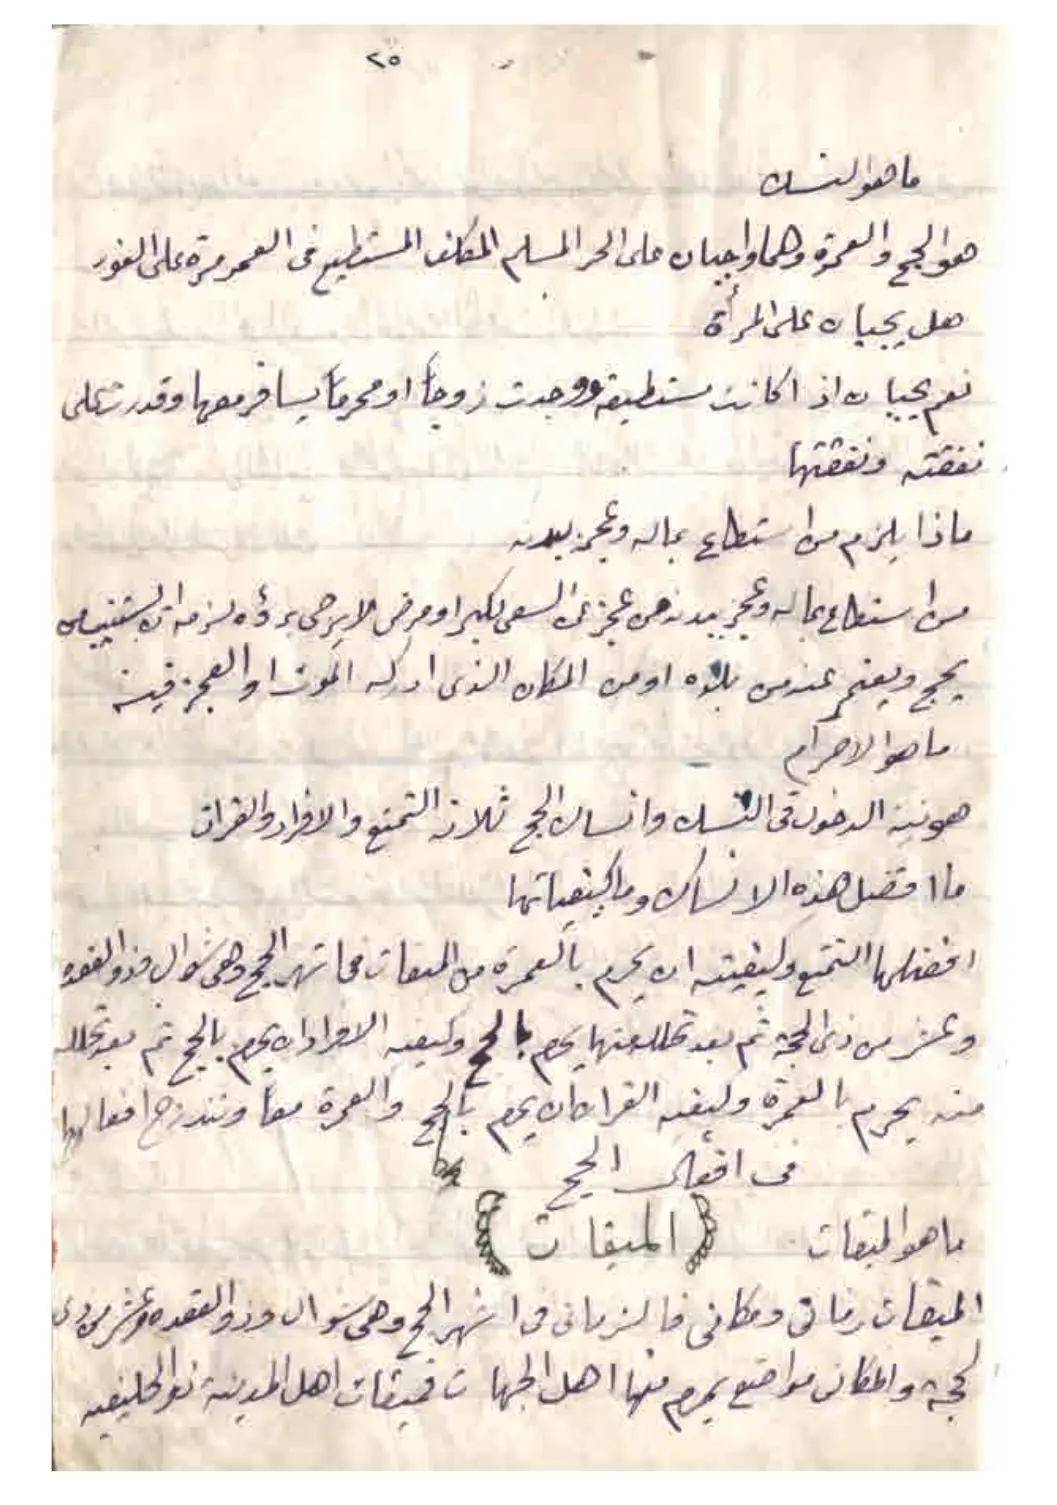 ٢٥
ما هو النسك
هو الحج والعمرة وهما واجبان على الحر المسلم المكلف المستطيع في العمر مرة على الفور
هل يجبان على المرأة
نعم يجبان اذا كانت مستطيعة ووجدت زوجاً او محرماً يسافر معها وقدرت على
نفقته ونفقتها
ماذا يلزم من استطاع بماله وعجز ببدنه
من استطاع بماله وعجز ببدنه عن السعي لكبر او مرض لا يرجى برؤه لزمه ان يستنيب من
يحج ويعتمر عنه من بلده او من المكان الذي ادركه الموت او العجز فيه
ما هو الاحرام
هو نية الدخول في النسك وانساك الحج ثلاثة التمتع والافراد والقران
ما افضل هذه الانساك وما كيفياتها
افضلها التمتع وكيفيته ان يحرم بالعمرة من الميقات في اشهر الحج وهي شوال وذو القعده
وعشر من ذي الحجة ثم بعد تحلله منها يحرم بالحج وكيفية الافراد ان يحرم بالحج ثم بعد تحلله
منه يحرم بالعمرة وكيفية القران ان يحرم بالحج والعمرة معاً وتندرج افعالها
في افعال الحج
(الميقات)
ما هو الميقات
الميقات زماني ومكاني فالزماني في اشهر الحج وهي شوال وذو القعده وعشر من ذي
الحجة والمكاني مواضع يحرم منها اهل الجهات فميقات اهل المدينة ذو الحليفه